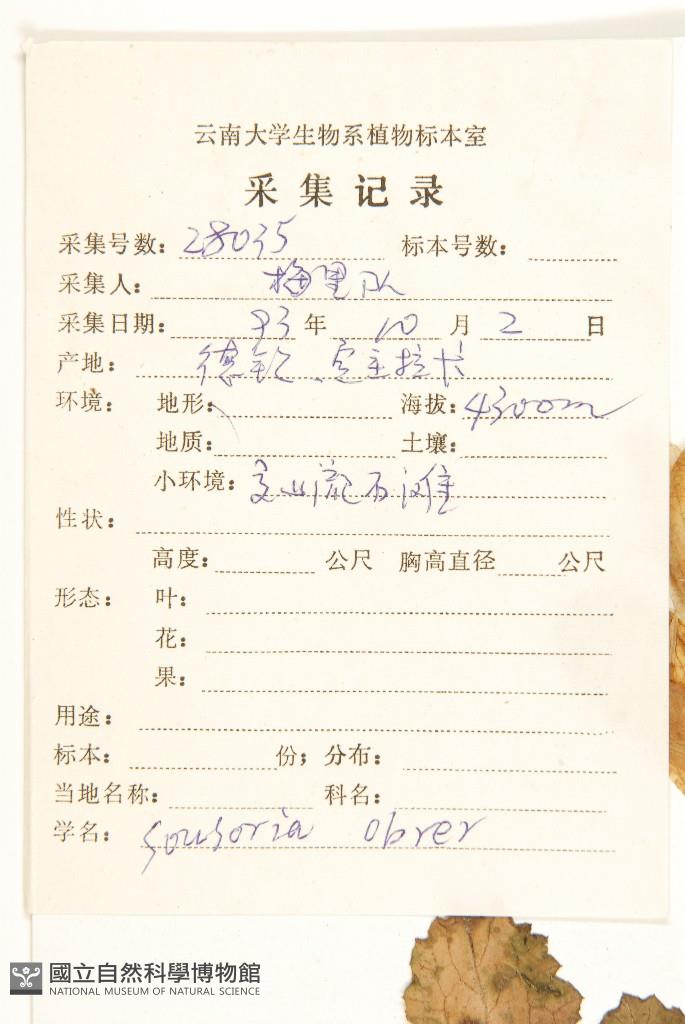 云南大学生物系植物标本室
采集记录
采集号数：28035 标本号数：
采集人：梅里队
采集日期：93年10月2日
产地：德钦、拉卡
环境： 地形： 海拔：4300m
地质： 土壤：
小环境：高山流石滩
性状：
高度： 公尺 胸高直径 公尺
形态： 叶：
花：
果：
用途：
标本： 份；分布：
当地名称： 科名：
学名：
國立自然科學博物館
NATIONAL MUSEUM OF NATURAL SCIENCE